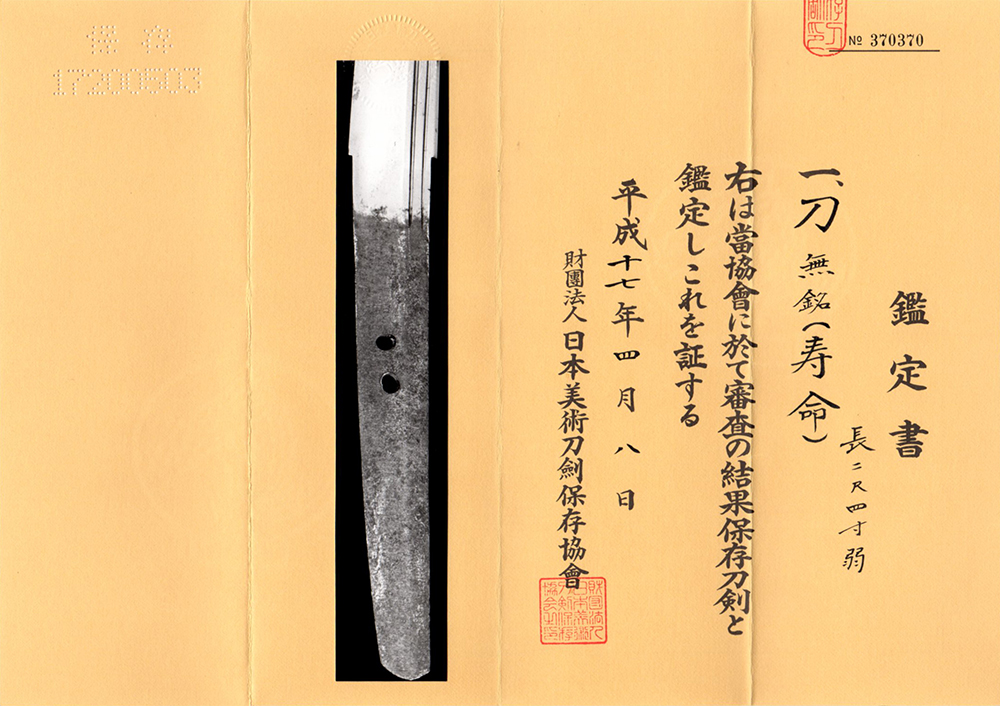 № 370370
鑑定書
一、刀 無銘(寿命)
長二尺四寸弱
右は當協會に於て審査の結果保存刀剣と
鑑定しこれを証する
平成十七年四月八日
財團法人 日本美術刀劍保存協會
保存
17200503